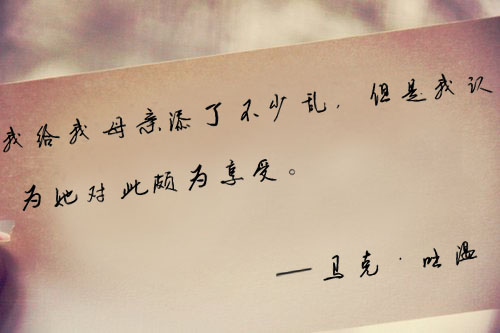 我给我母亲添了不少乱，但是我认
为她对此颇为享受。
—马克·吐温